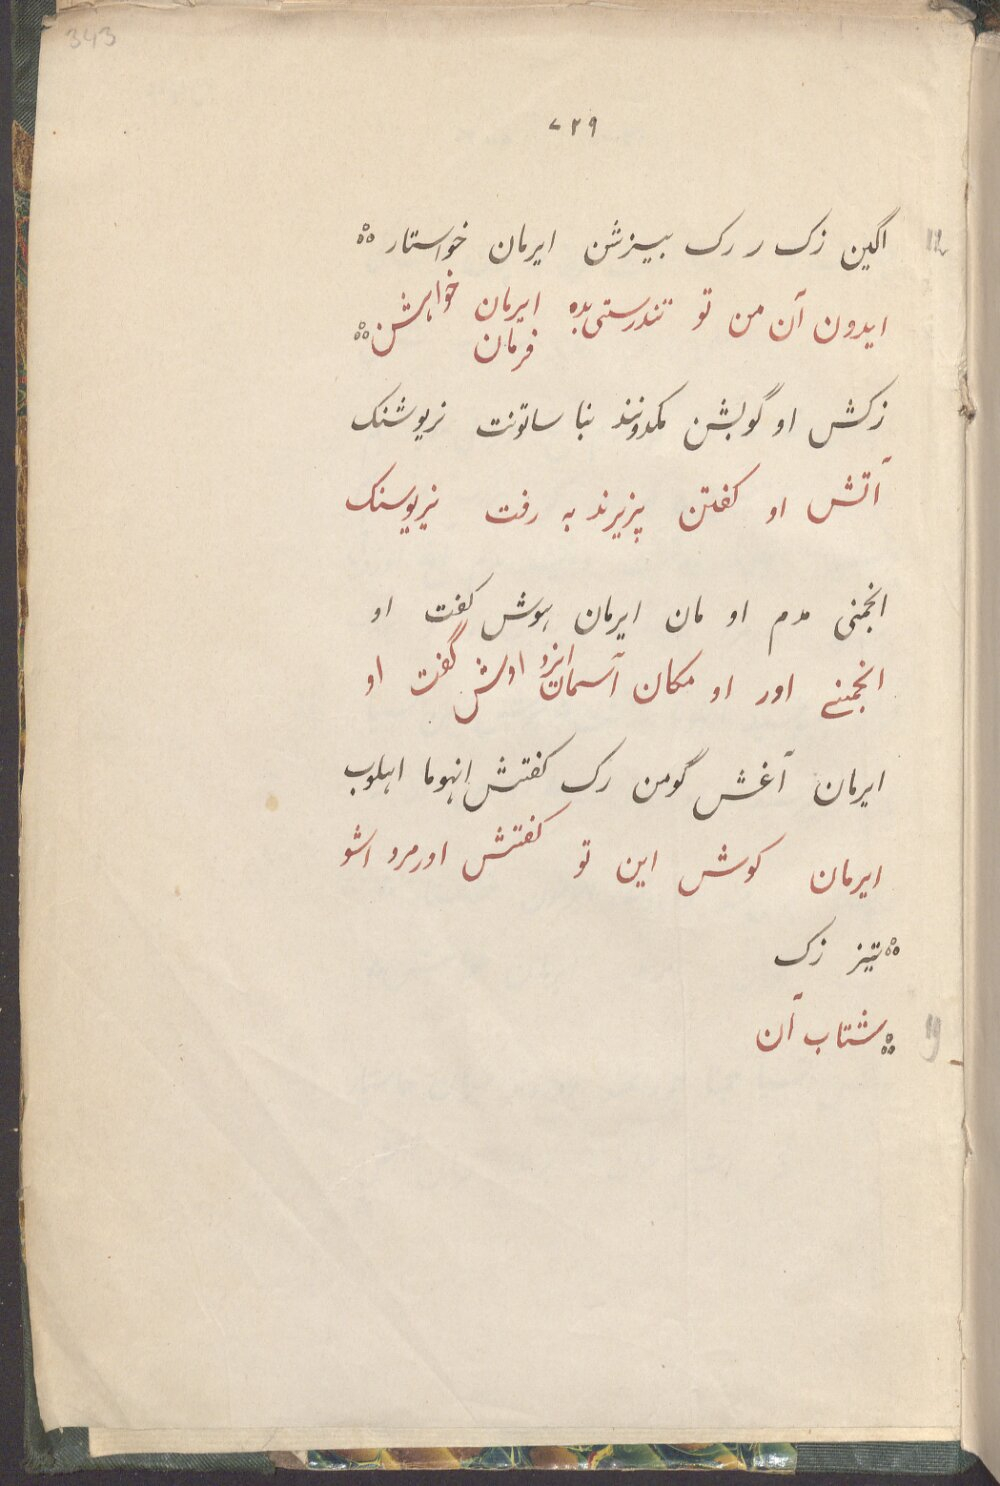 343
۷۲۹
اگین زک ر رک بیزشن ایرمان خواستار
12
ایدون آن من تو تندرستی بده ایرمان خواهش
فرمان
زکش او گوبشن مکدونند بنا ساتونت نریوشنک
آتش او کفتن پزیرند به رفت نیریوسنک
انجمنی مدم او مان ایرمان هوش کفت او
انجمنے اور او مکان آسمان ایزد اوش گفت او
ایرمان آغش گومن رک کفتش انهوما اهلوب
ایرمان کوش این تو کفتش اورمرو اشو
تیز زک
شتاب آن
19